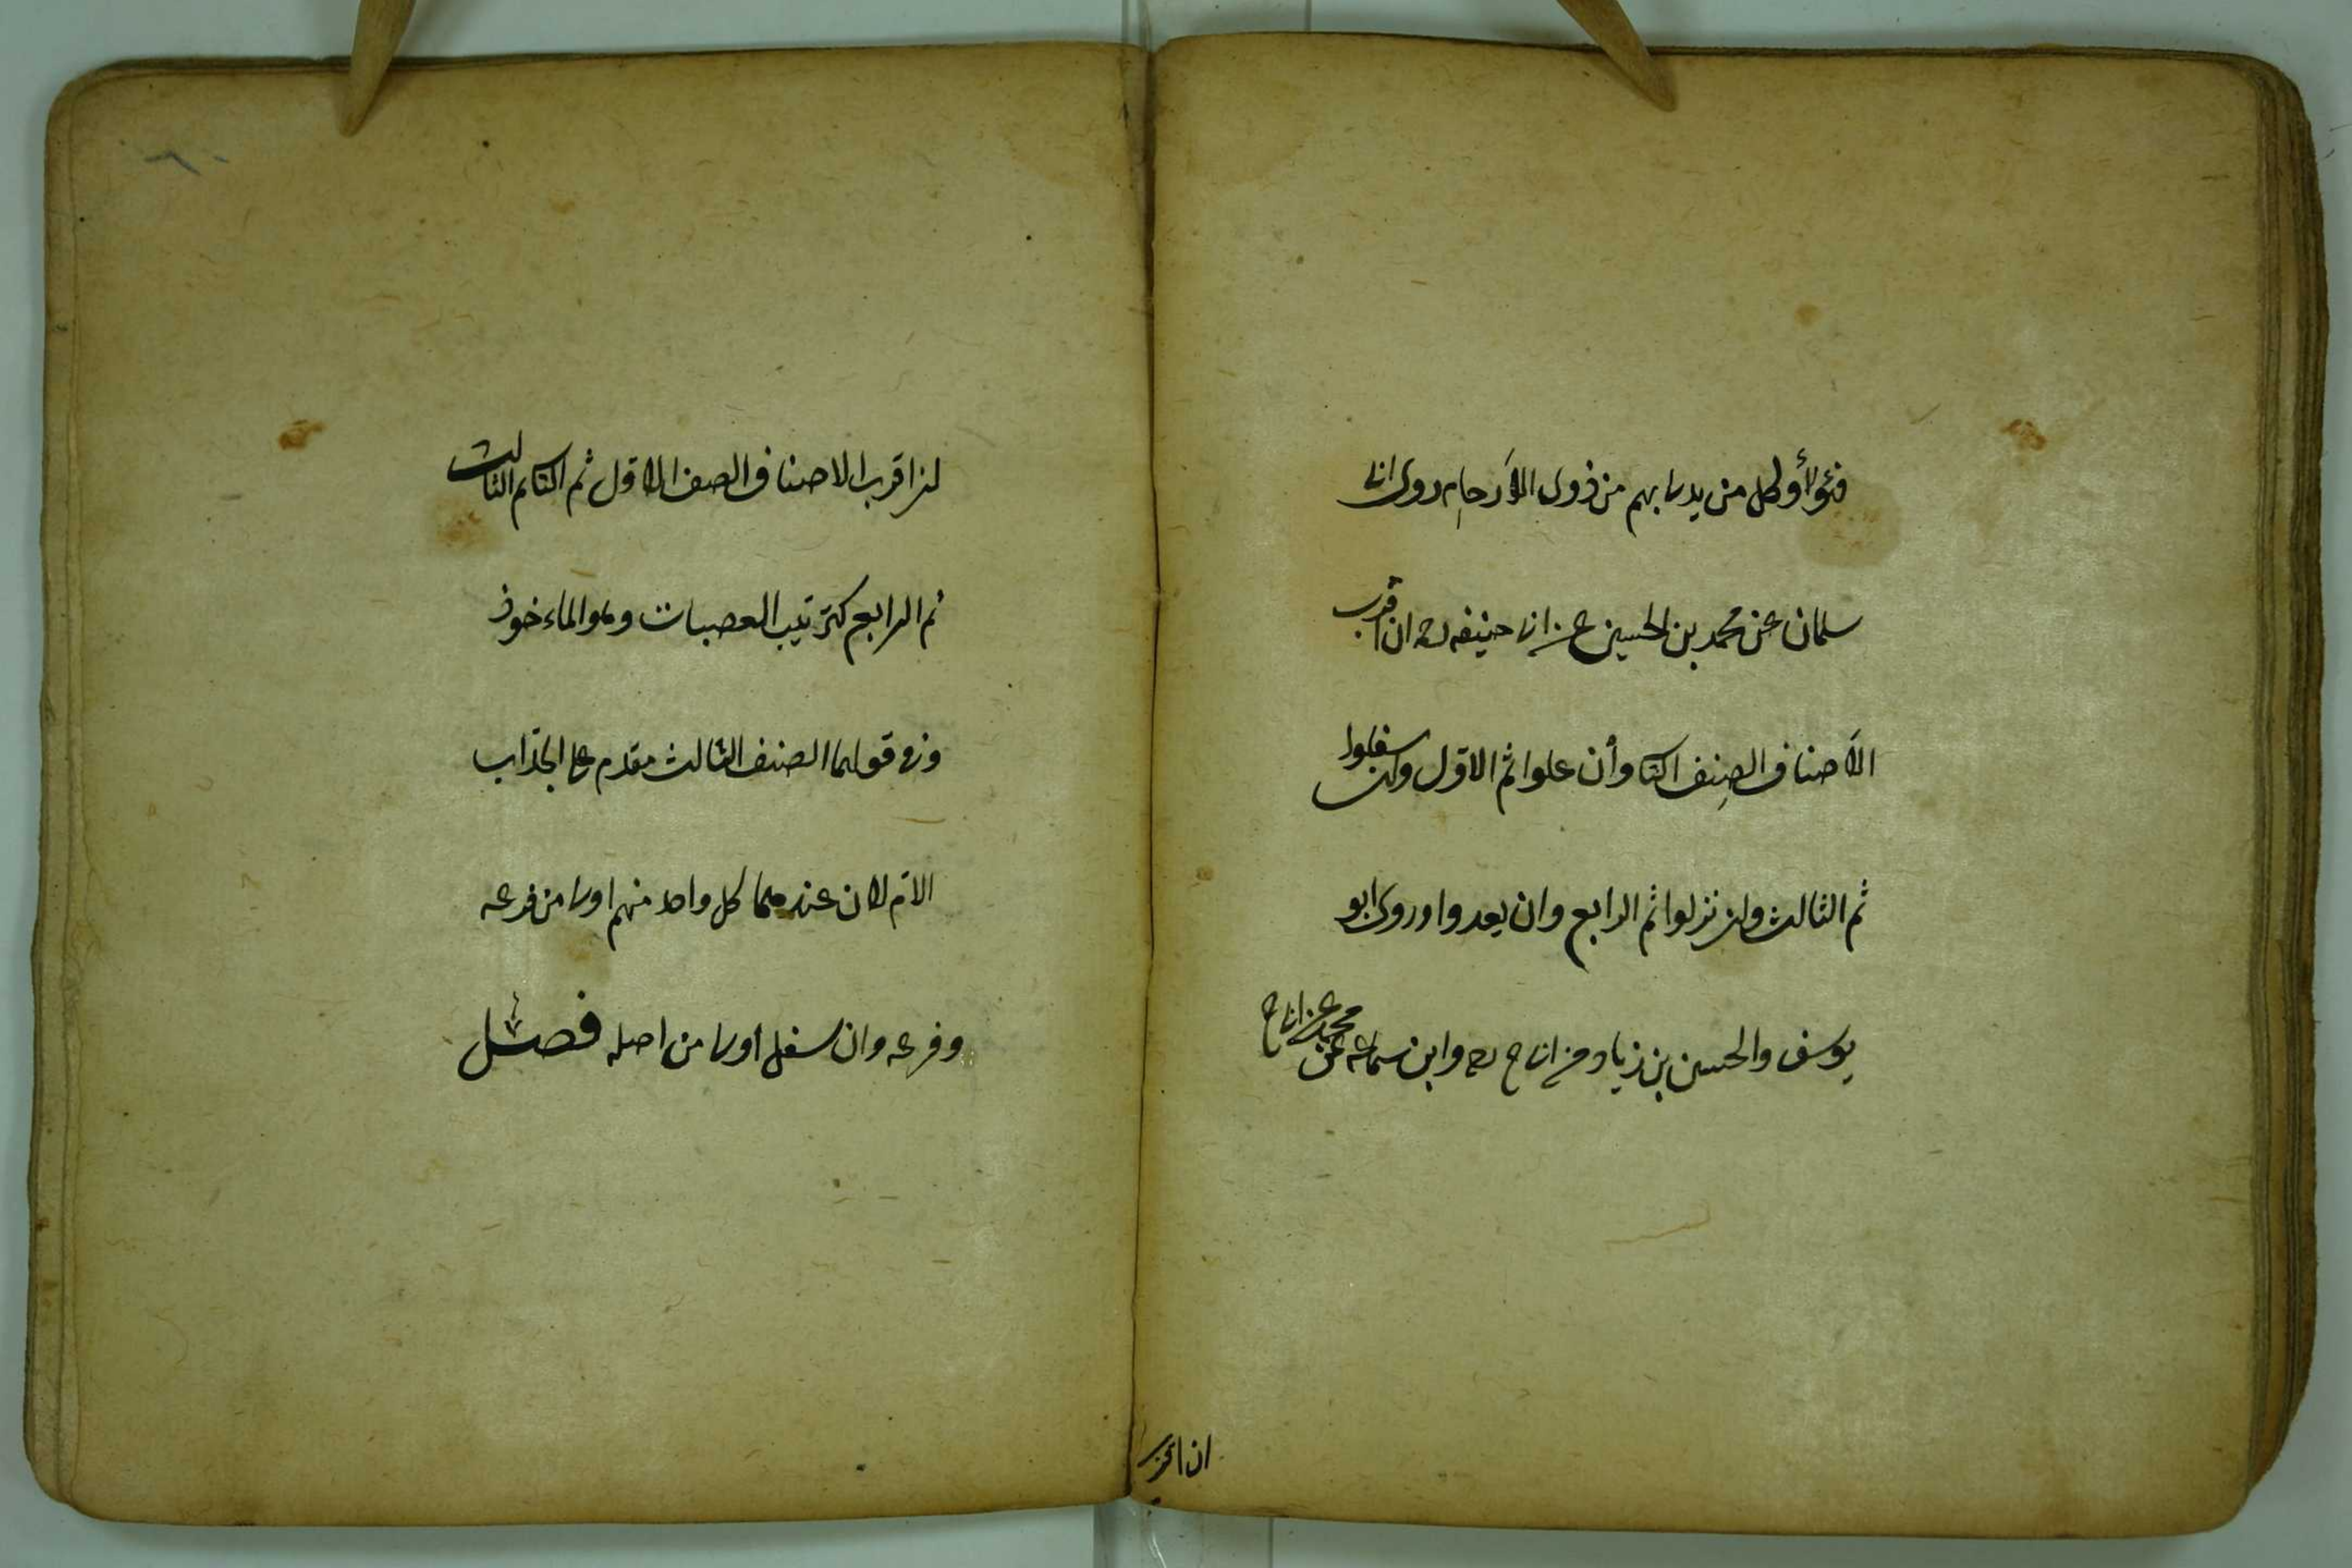 فهؤلاء وكل من يدلى بهم من ذوى الأرحام روى ابا
سلمان عن محمد بن الحسين عن ابى حنيفه رح ان اقرب
الاصناف الصنف الثا وأن علوا ثم الاول وان سفلوا
ثم الثالث وان نزلوا ثم الرابع وان بعدوا وروى ابو
يوسف والحسن بن زياد عن ابى ح رح وابن سماعه عن محمد عن ابى ح
ان اقرب
ان اقرب الاصناف الصنف الاول ثم الثا ثم الثالث
ثم الرابع كترتيب العصبات وهو الماءخوذ
وفى قولهما الصنف الثالث مقدم على الجد اب
الام لان عندهما كل واحد منهم اولى من فرعه
وفرعه وان سفل اولى من اصله فصل